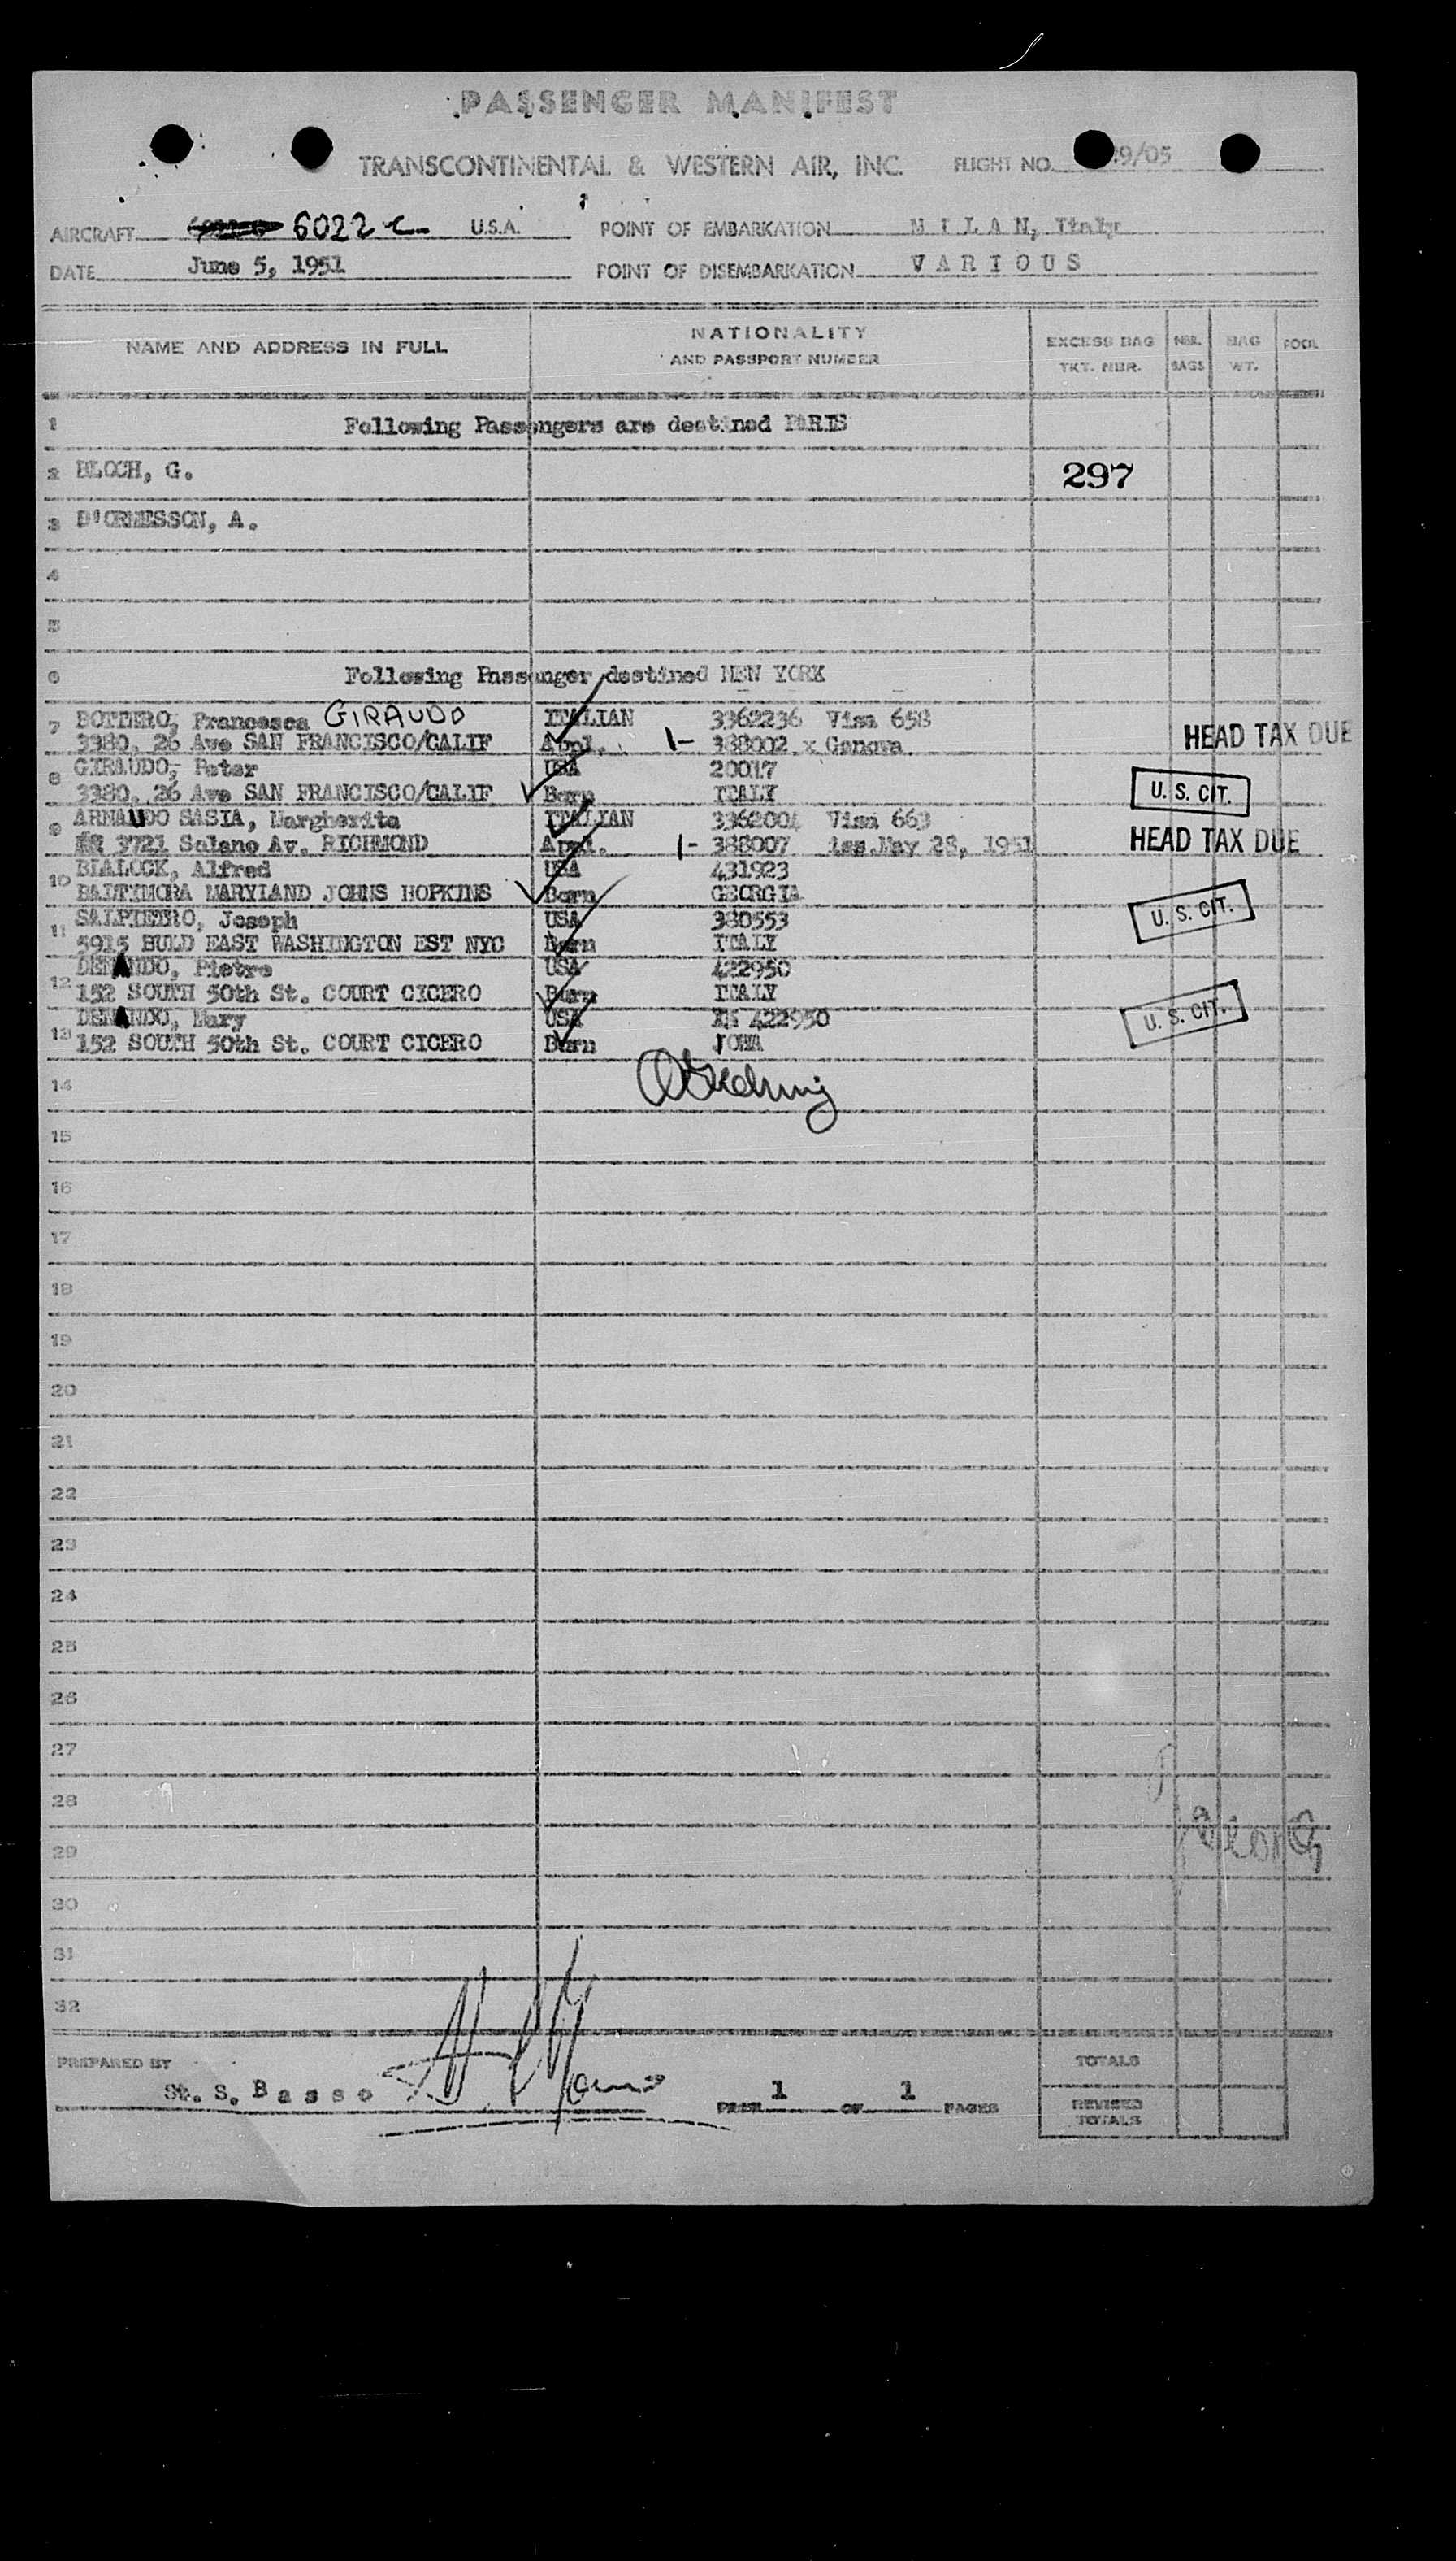 PASSENGER MANIFEST
TRANSCONTINENTAL & WESTERN AIR, INC. FLIGHT NO. 9/05
AIRCRAFT 6022 C U.S.A. POINT OF EMBARKATION MILAN, Italy
DATE June 5, 1951 POINT OF DISEMBARKATION VARIOUS
NAME AND ADDRESS IN FULL NATIONALITY AND PASSPORT NUMBER EXCESS BAG TKT. NBR. NBR. BAGS BAG WT. POOL
1 Following Passengers are destined PARIS
2 BLOCH, G. 297
3 D'ORMESSON, A.
4
5
6 Following Passenger destined NEW YORK
7 BOTTERO, Francesca GIRAUDO ITALIAN 3362236 Visa 658
3380, 26 Ave SAN FRANCISCO/CALIF Appl. 1- 388002 x Genova HEAD TAX DUE
8 GIRAUDO, Peter USA 20017
3380, 26 Ave SAN FRANCISCO/CALIF Born ITALY U. S. CIT.
9 ARNAUDO SASIA, Margherita ITALIAN 3362004 Visa 663
3721 Solano Av. RICHMOND Appl. 1- 388007 iss.May 28, 1951 HEAD TAX DUE
10 BLALOCK, Alfred USA 431923
BALTIMORA MARYLAND JOHNS HOPKINS Born GEORGIA
11 SALPIETRO, Joseph USA 380553 U. S. CIT.
5915 BULD EAST WASHINGTON EST NYC Born ITALY
12 DENANDO, Pietro USA 422950
152 SOUTH 50th St. COURT CICERO Born ITALY
13 DENANDO, Mary USA 422950 U. S. CIT.
152 SOUTH 50th St. COURT CICERO Born IOWA
14
15
16
17
18
19
20
21
22
23
24
25
26
27
28
29
30
31
32
PREPARED BY TOTALS
St. S. Basso PAGE 1 OF 1 PAGES REVISED TOTALS